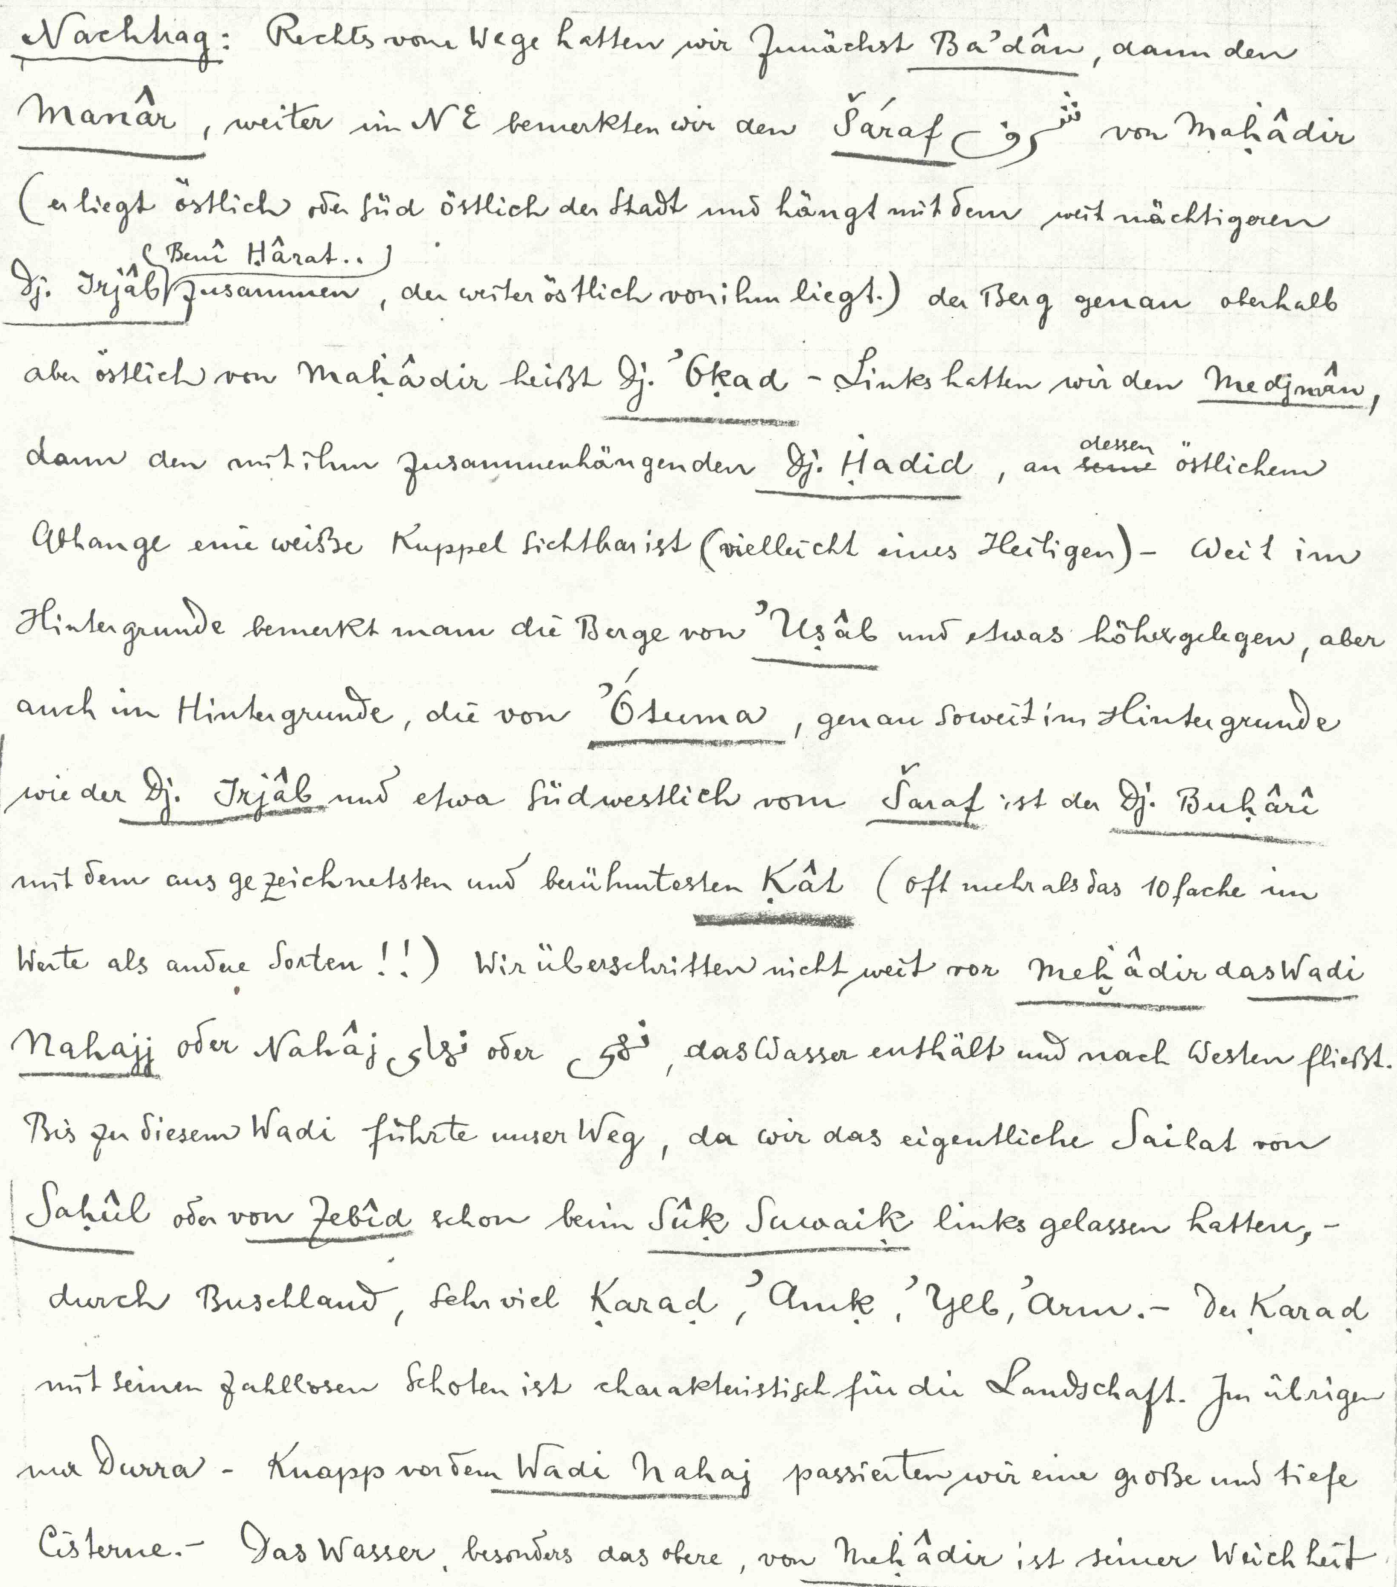 Nachtrag: Rechts vom Wege hatten wir zunächst Ba'dân, dann den
Manâr, weiter im NE bemerkten wir den Šáraf شرف von Maḥâdir
(er liegt östlich oder südöstlich der Stadt und hängt mit dem weit mächtigeren
(Benî Ḥârat..)
Dj. Irjâb zusammen, der weiter östlich von ihm liegt.) der Berg genau oberhalb
aber östlich von Maḥâdir heißt Dj. 'Oḳad - Links hatten wir den Medjmân,
dann den mit ihm zusammenhängenden Dj. Ḥadid, an seine dessen östlichem
Abhange eine weiße Kuppel sichtbar ist (vielleicht eines Heiligen) - Weit im
Hintergrunde bemerkt man die Berge von 'Uṣâb und etwas höher gelegen, aber
auch im Hintergrunde, die von 'Ótuma, genau soweit im Hintergrunde
wie der Dj. Irjâb und etwa südwestlich vom Šaraf ist der Dj. Buḥârî
mit dem ausgezeichnetsten und berühmtesten Ḳât (oft mehr als das 10fache im
Werte als andere Sorten!!) Wir überschritten nicht weit vor Meḫâdir das Wadi
Nahajj oder Nahâj نهاي oder نهي, das Wasser enthält und nach Westen fließt.
Bis zu diesem Wadi führte unser Weg, da wir das eigentliche Sailat von
Saḥûl oder von Zebîd schon beim Sûḳ Suwaiḳ links gelassen hatten, -
durch Buschland, sehr viel Ḳaraḍ, 'Amḳ, 'Ylb, 'Arm. - Der Ḳaraḍ
mit seinen zahllosen Schoten ist charakteristisch für die Landschaft. Im übrigen
nur Durra - Knapp vor dem Wadi Nahaj passierten wir eine große und tiefe
Cisterne. - Das Wasser, besonders das obere, von Meḥâdir ist seiner Weichheit